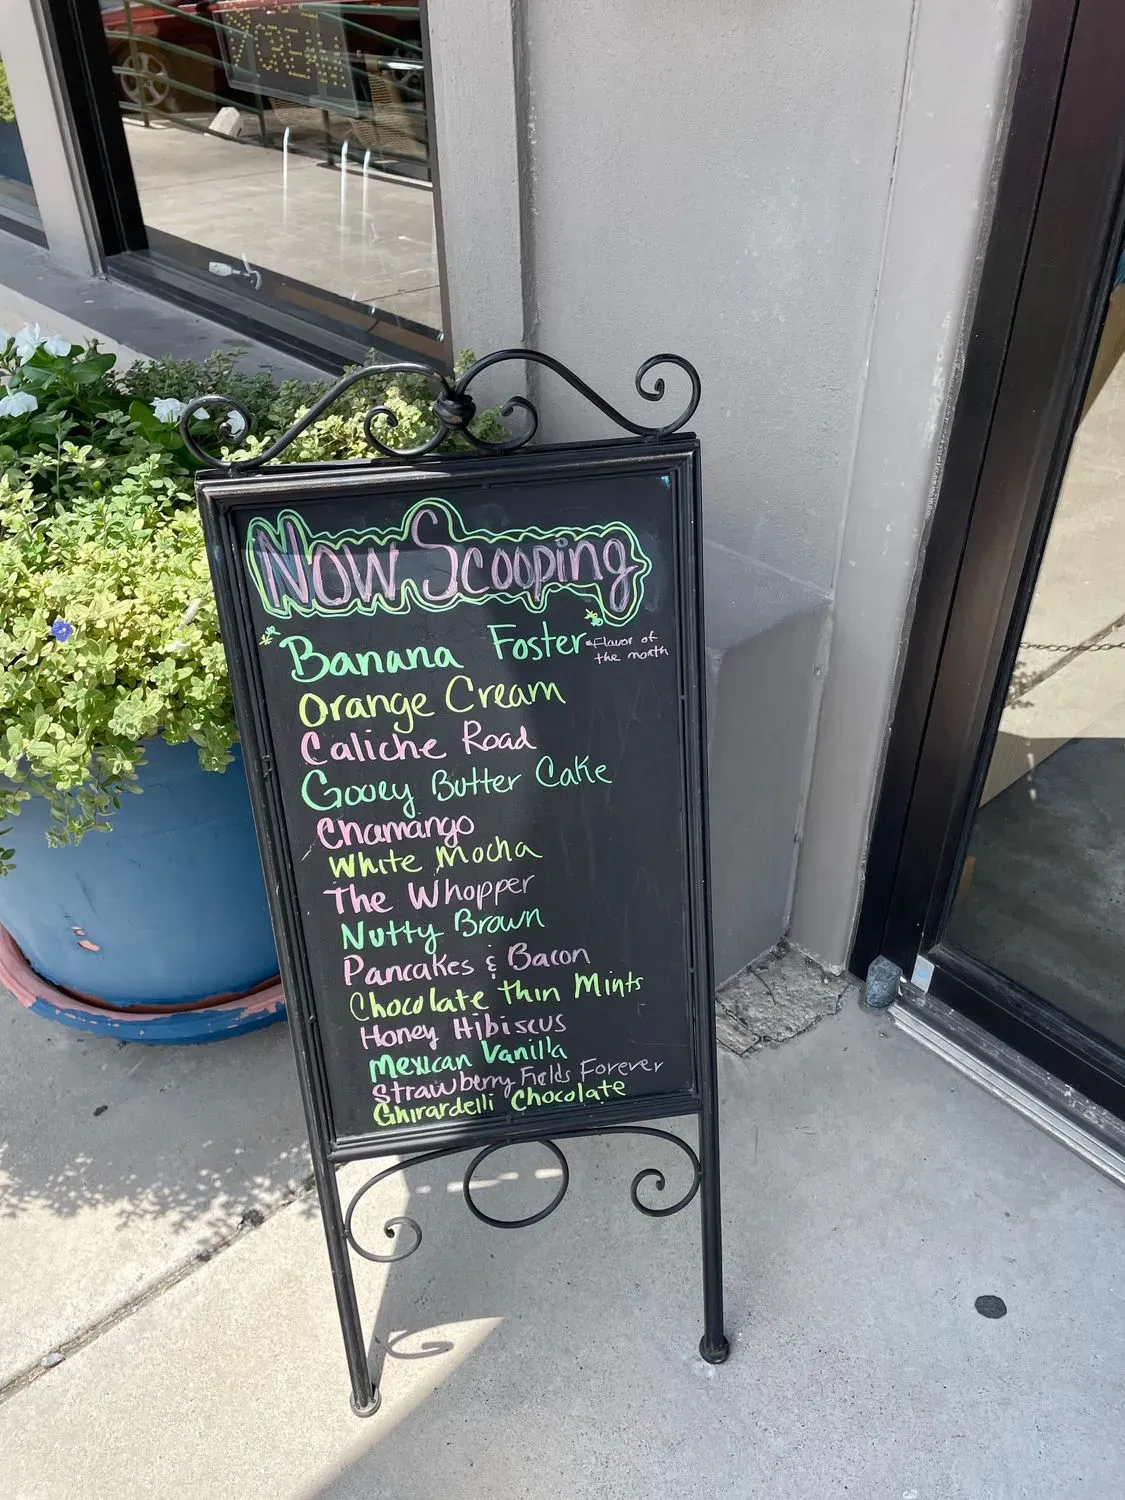 Now Scooping
Banana Foster
*Flavor of
the month
Orange Cream
Caliche Road
Gooey Butter Cake
Chamango
White Mocha
The Whopper
Nutty Brown
Pancakes & Bacon
Chocolate Thin Mints
Honey Hibiscus
Mexican Vanilla
Strawberry Fields Forever
Ghirardelli Chocolate